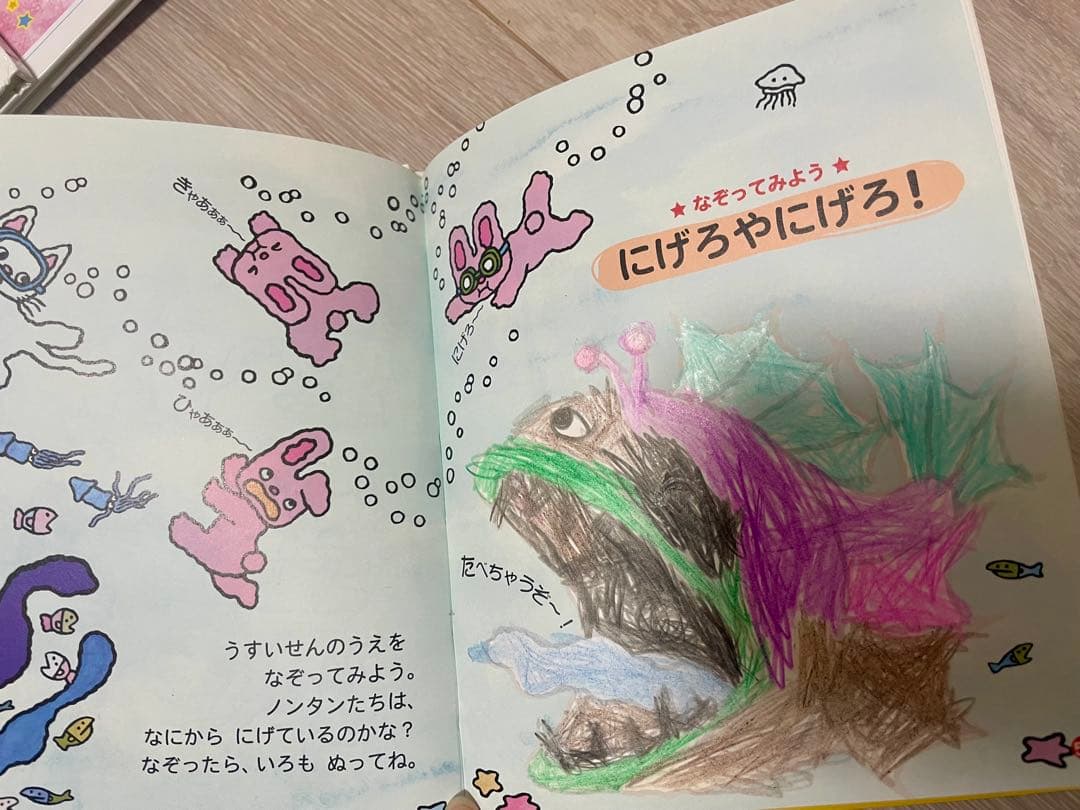 きゃあぁぁ〜
ひゃあぁぁ〜
うすいせんのうえを
なぞってみよう。
ノンタンたちは、
なにから にげているのかな？
なぞったら、いろも ぬってね。
★ なぞってみよう ★
にげろやにげろ！
にげろ〜
たべちゃうぞ〜！